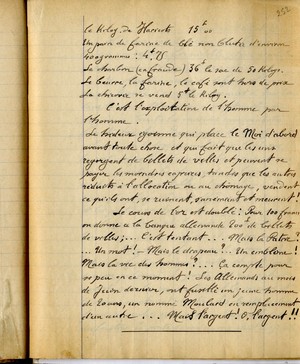 252
le kilog. de Haricots 15f 00
Un pain de farine de blé non blutée d'environ
400 grammes : 4f 75
Le charbon (en fraude) 36f le sac de 50 kilogs.
Le beurre, la farine, le café sont hors de prix
La chicorée se vend 5f le kilog.
C'est l'exploitation de l'homme par
l'homme.
Le hideux égoïsme qui place le Moi d'abord
avant toute chose et qui fait que les uns
regorgent de billets de villes et peuvent se
payer les moindres caprices, tandis que les autres
réduits à l'allocation ou au chômage, vendent
ce qu'ils ont, se ruinent, et meurent !
Le cours de l'or est doublé : Pour 100 francs
on donne à la banque allemande 200f de billets
de villes ;... C'est tentant... Mais la Patrie ?
... Un mot !... Mais le drapeau ?... Un emblème !
Mais la vie des hommes ?... Ça compte pour
si peu en ce moment ! Les Allemands au mois
de Juin dernier, ont fusillé un jeune homme
de 20 ans, un nommé Moulard en remplacement
d'un autre... Mais l'argent ! O, l'argent !!